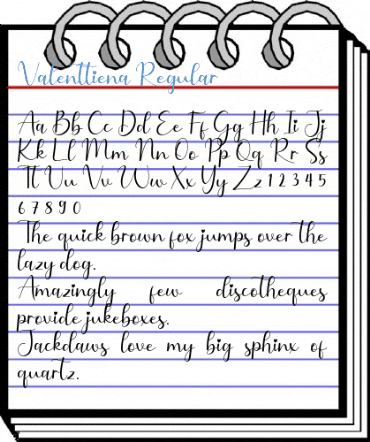 Valenttiena Regular
Aa Bb Cc Dd Ee Ff Gg Hh Ii Jj
Kk Ll Mm Nn Oo Pp Qq Rr Ss
Tt Uu Vv Ww Xx Yy Zz 1 2 3 4 5
6 7 8 9 0
The quick brown fox jumps over the
lazy dog.
Amazingly few discotheques
provide jukeboxes.
Jackdaws love my big sphinx of
quartz.